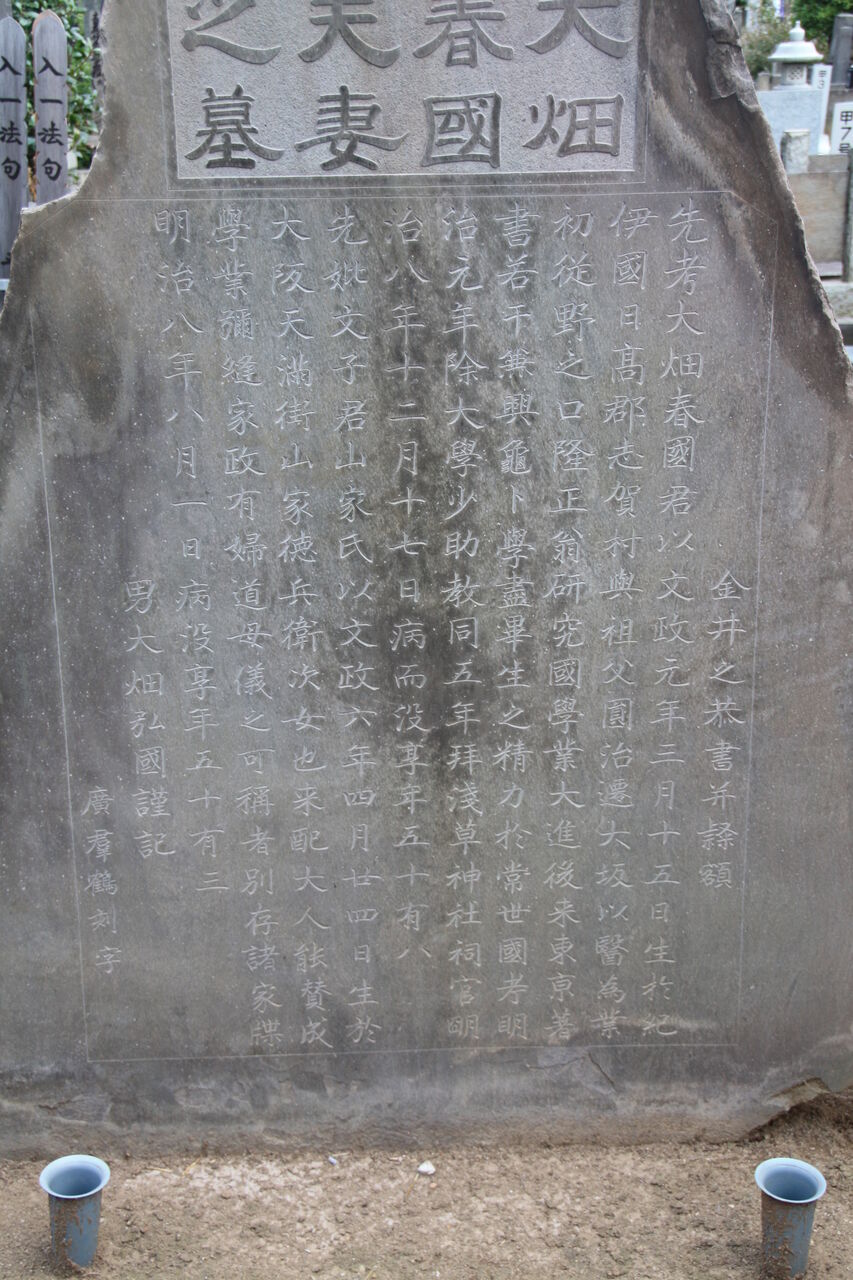 大畑
春國
夫妻
之墓
金井之恭書并隷額
先考大畑春國君以文政元年三月十五日生於紀
伊國日高郡志賀村與祖父圓治遷大坂以醫為業
初從野之口隆正翁研究國學業大進後来東京著
書若干興龜卜學盡畢生之精力於常世國考明
治元年除大學少助教同五年拜淺草神社祠官明
治八年十二月十七日病而没享年五十有八
先妣文子君山家氏以文政六年四月廿四日生於
大阪天滿街山家德兵衛次女也来配大人能賛成
學業彌縫家政有婦道母儀之可稱者別存諸家牒
明治八年八月一日病没享年五十有三
男大畑弘國謹記
廣羣鶴刻字
入一法句
入一法句
甲3
甲7号